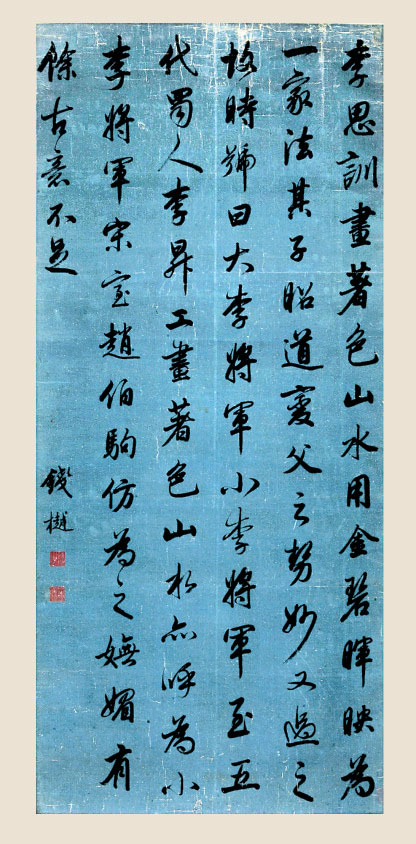 李思訓畫著色山水用金碧暉映為
一家法其子昭道變父之勢妙又過之
故時號曰大李將軍小李將軍至五
代蜀人李昇工畫著色山水亦呼為小
李將軍宋室趙伯駒仿為之嫵媚有
餘古意不足
錢樾